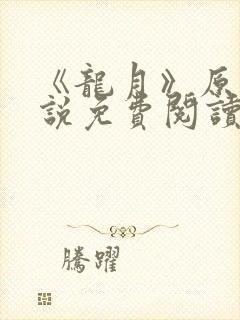 《龍月》原
說免費閱讀
騰躍